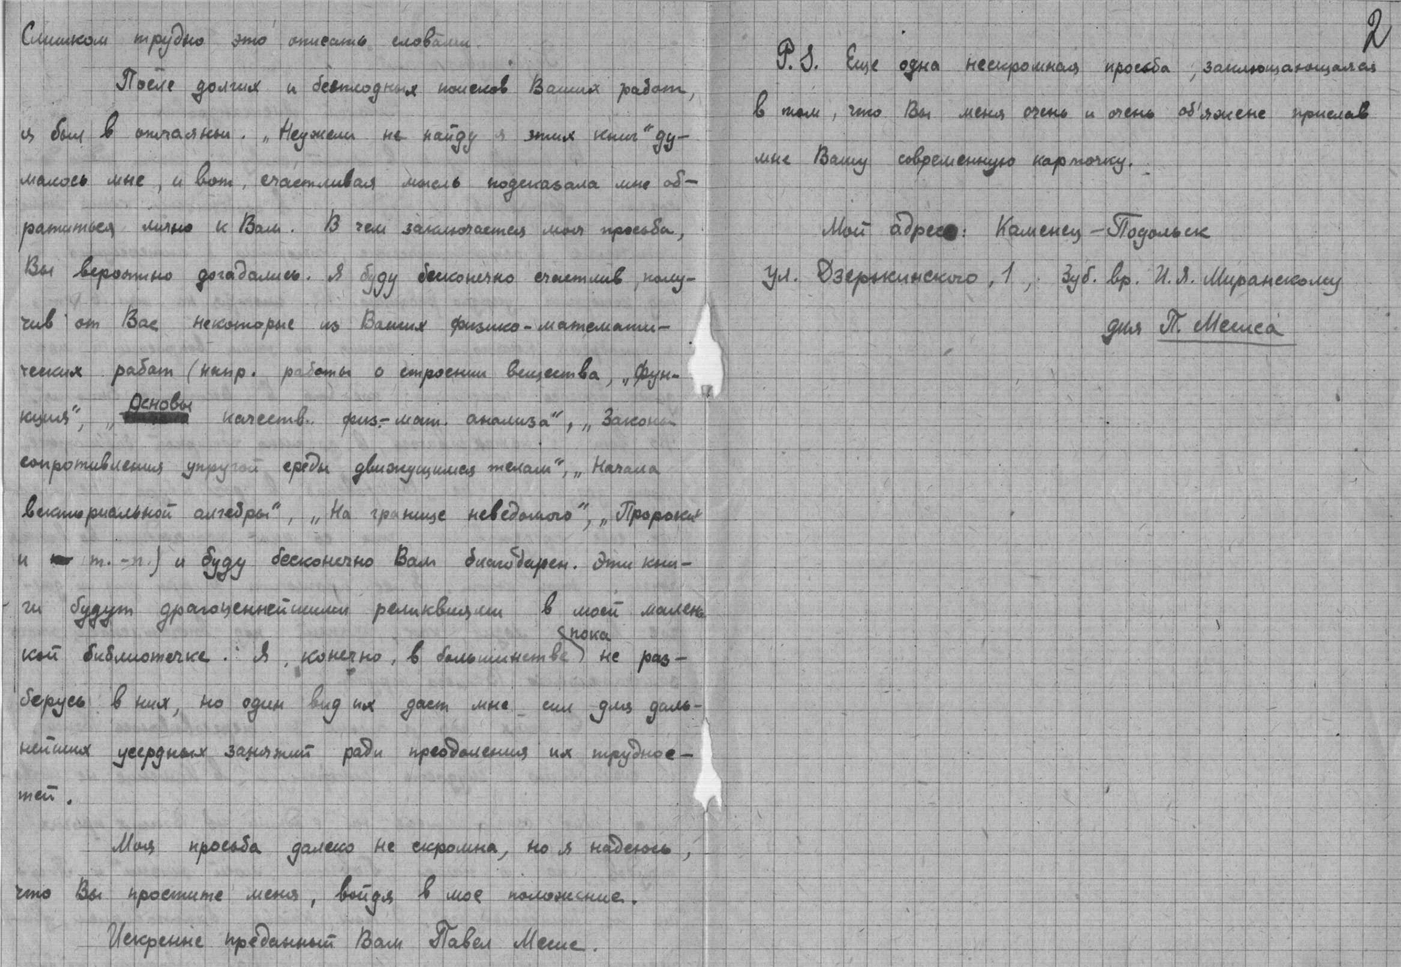 Слишком трудно это описать словами.
После долгих и бесплодных поисков Ваших работ,
я был в отчаяньи. „Неужели не найду я этих книг“ ду-
малось мне, и вот, счастливая мысль подсказала мне об-
ратиться лично к Вам. В чем заключается моя просьба,
Вы вероятно догадались. Я буду бесконечно счастлив, полу-
чив от Вас некоторые из Ваших физико-математи-
ческих работ (напр. работы о строении вещества, „Фун-
кция“, „Основы качеств. физ-мат. анализа“, „Законы
сопротивления упругой среды движущимся телам“, „Начала
векториальной алгебры“, „На границе неведомого“, „Пророки“
и т.-п.) и буду бесконечно Вам благодарен. Эти кни-
ги будут драгоценнейшими реликвиями в моей малень
кой библиотечке. Я, конечно, в большинстве пока не раз-
берусь в них, но один вид их даст мне сил для даль-
нейших усердных занятий ради преодоления их труднос-
тей.
Моя просьба далеко не скромна, но я надеюсь,
что Вы простите меня, войдя в мое положение.
Искренне преданный Вам Павел
2
P.S. Еще одна нескромная просьба, заключающаяся
в том, что Вы меня очень и очень об'яжете прислав
мне Вашу современную карточку.
Мой адрес: Каменец-Подольск
ул. Дзержинского, 1, Зуб. вр. И.Я. Миранскому
для П.